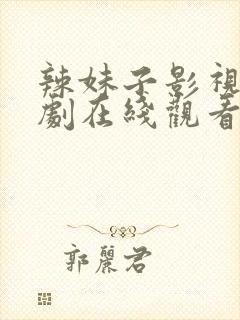 辣妹子影視
劇在綫觀看
郭麗君